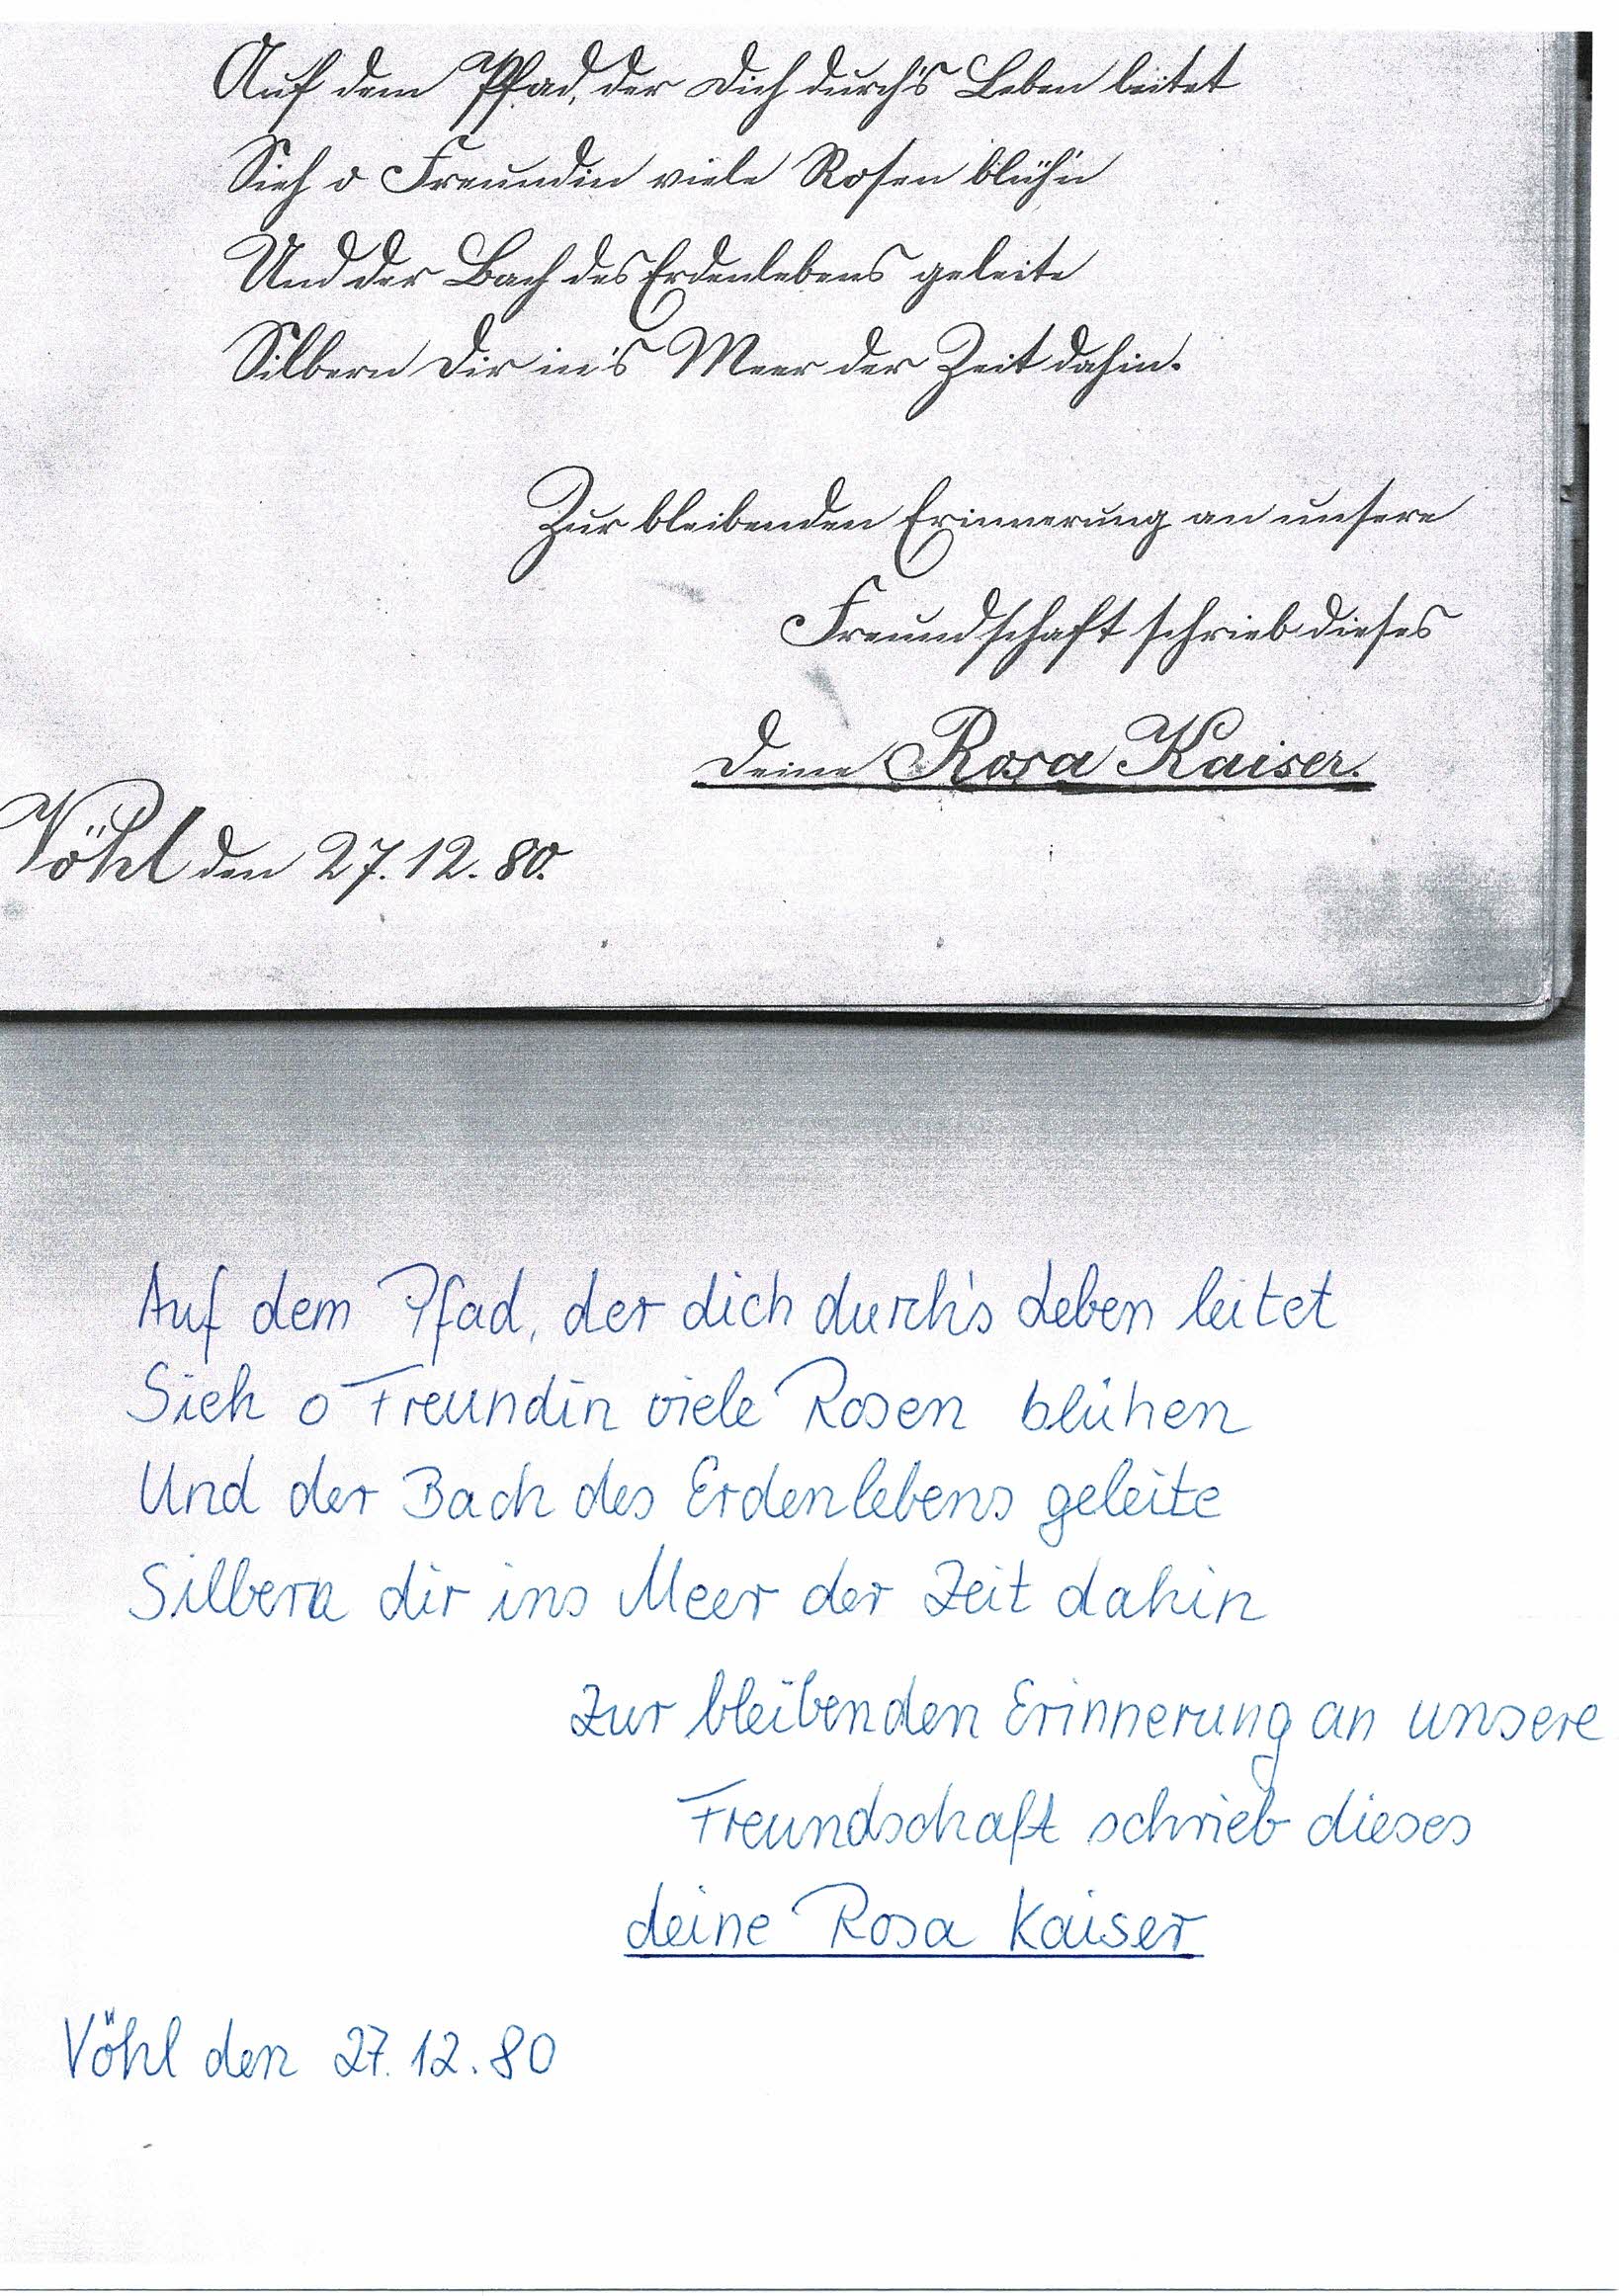 Auf dem Pfad, der Dich durch's Leben leitet
Sieh o Freundin viele Rosen blüh'n
Und der Bach des Erdenlebens geleite
Silbern Dir in's Meer der Zeit dahin.
Zur bleibenden Erinnerung an unsere
Freundschaft schrieb dieses
Deine Rosa Kaiser.
Vöhl den 27.12.80.
Auf dem Pfad, der dich durch's Leben leitet
Sieh o Freundin viele Rosen blühen
Und der Bach des Erdenlebens geleite
Silbern dir ins Meer der Zeit dahin
Zur bleibenden Erinnerung an unsere
Freundschaft schrieb dieses
deine Rosa Kaiser
Vöhl den 27.12.80